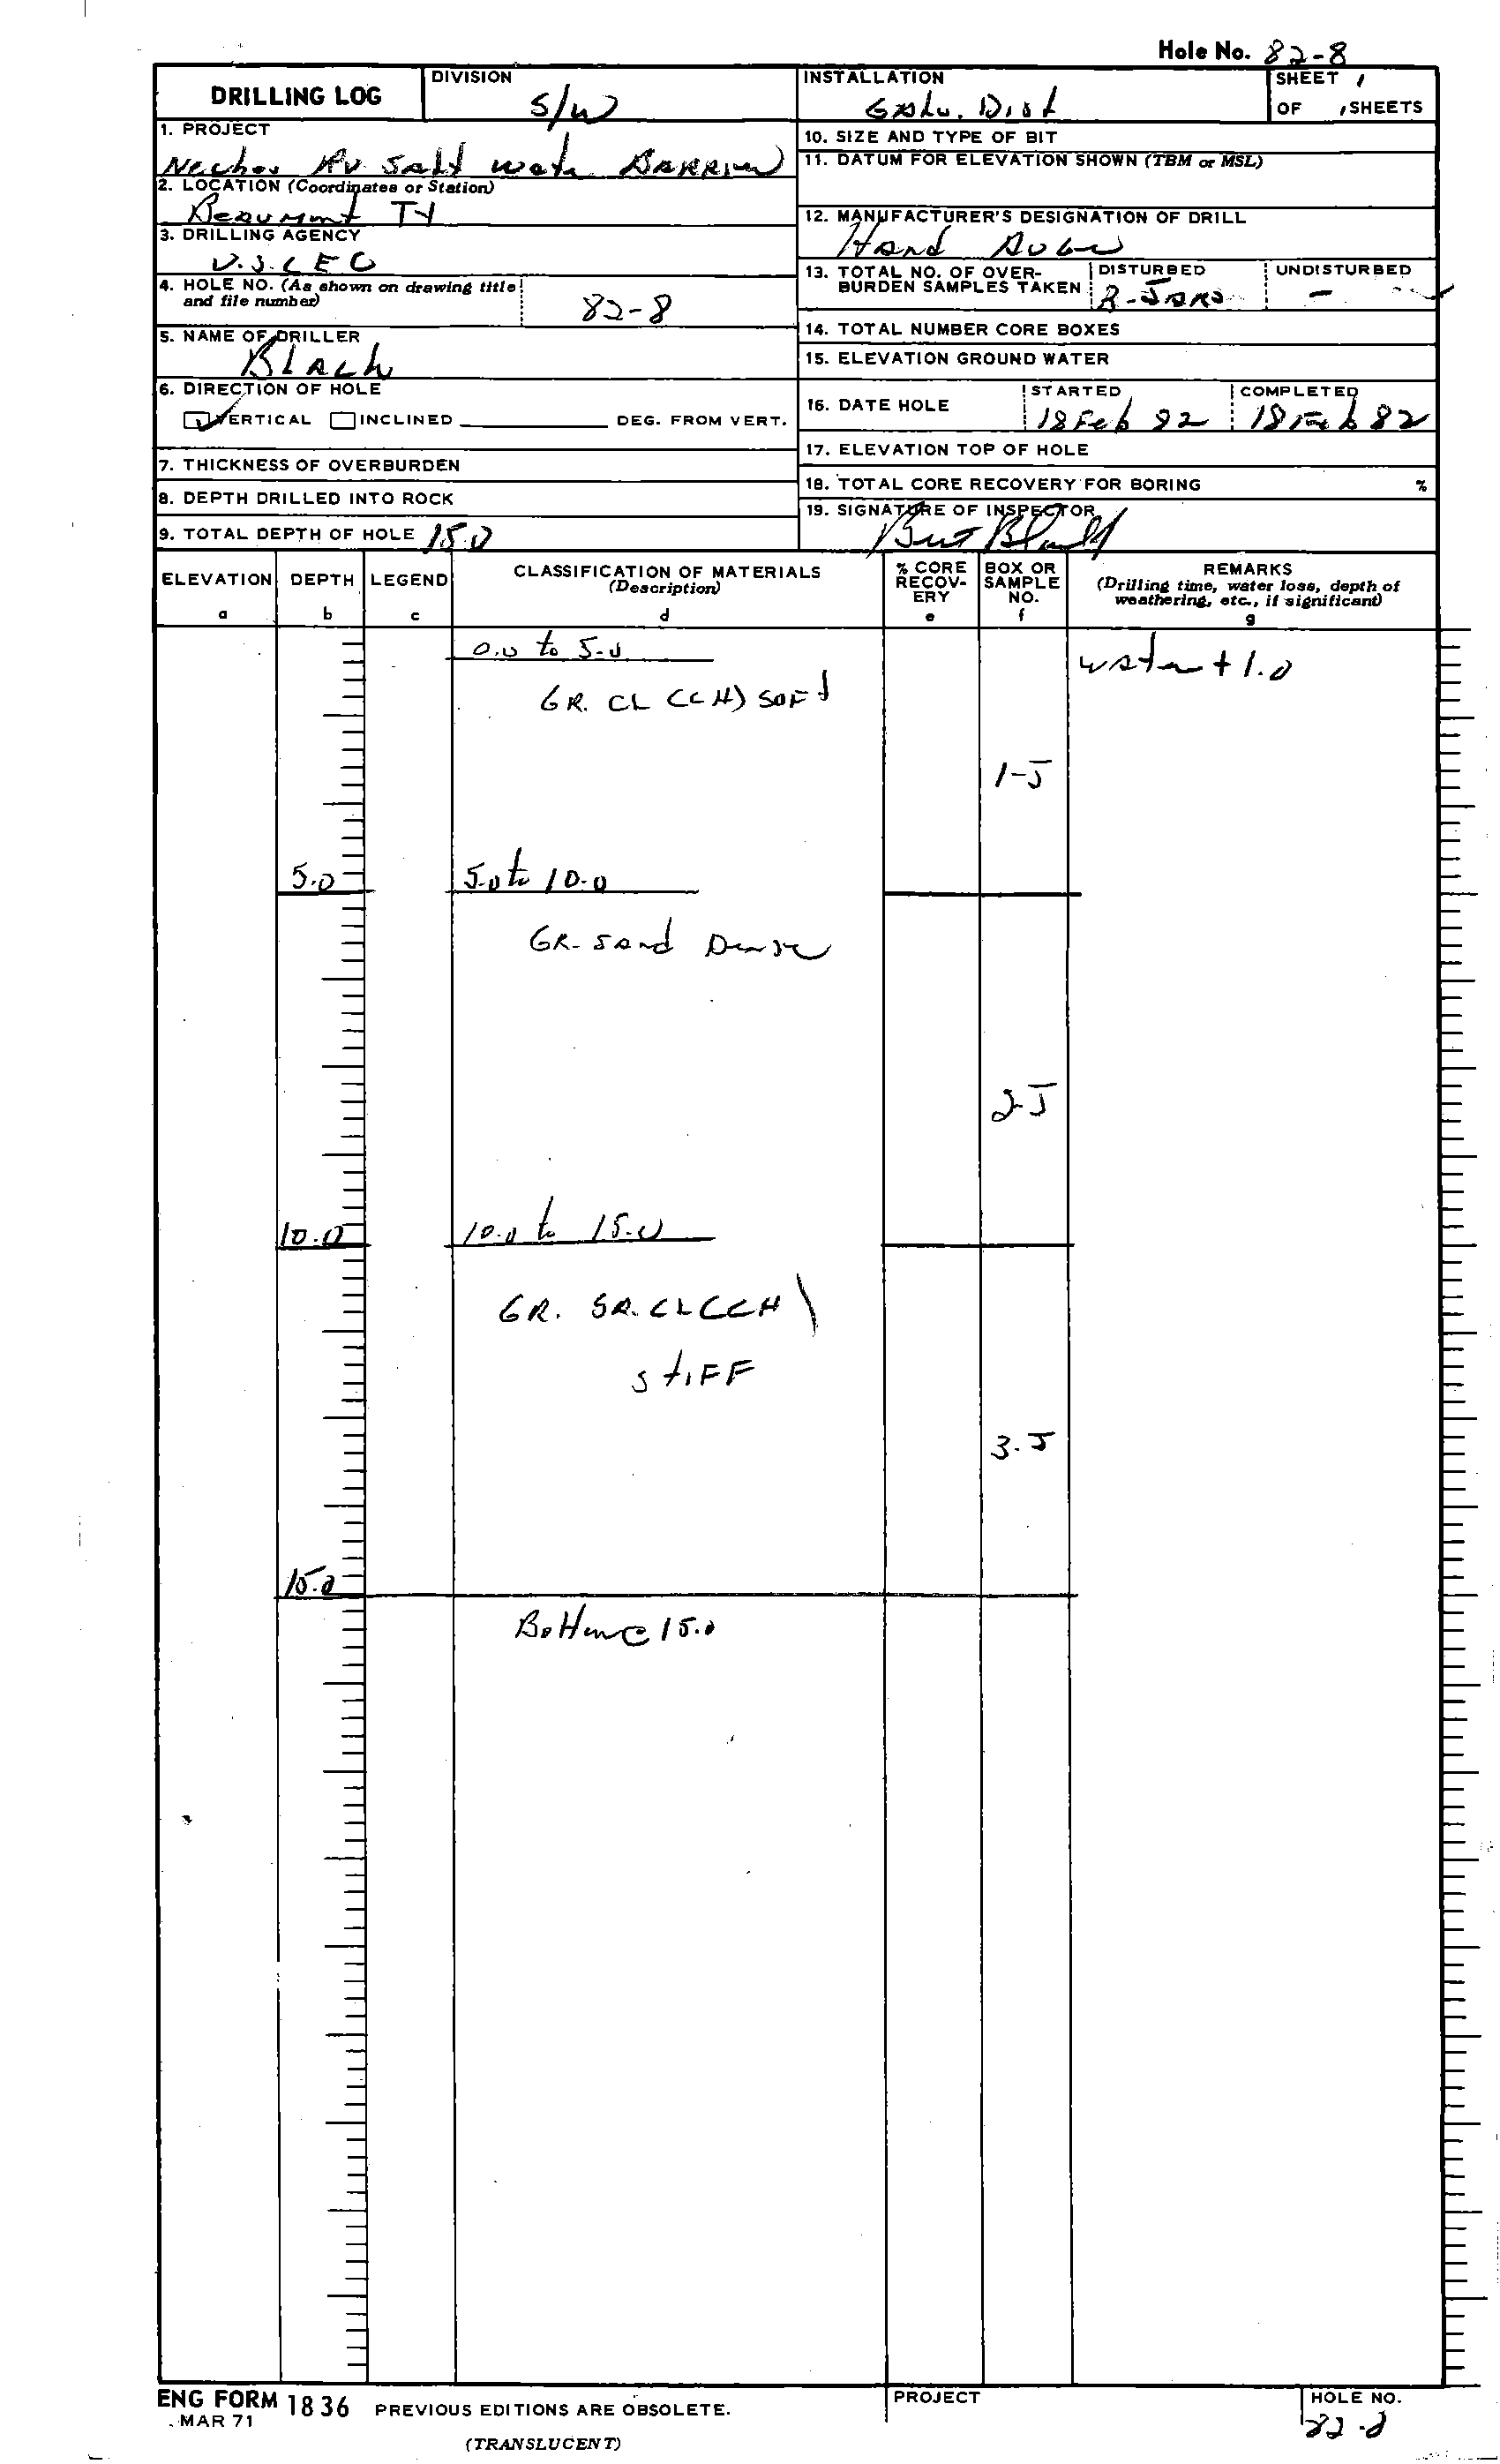 Hole No. 82-8
DRILLING LOG
DIVISION
S/W
INSTALLATION
Galv. Dist
SHEET 1
OF 1 SHEETS
1. PROJECT
Neches Rv Salt Water Barrier
2. LOCATION (Coordinates or Station)
Beaumont TX
3. DRILLING AGENCY
4. HOLE NO. (As shown on drawing title and file number)
82-8
5. NAME OF DRILLER
6. DIRECTION OF HOLE
VERTICAL INCLINED DEG. FROM VERT.
7. THICKNESS OF OVERBURDEN
8. DEPTH DRILLED INTO ROCK
9. TOTAL DEPTH OF HOLE 15.0
10. SIZE AND TYPE OF BIT
11. DATUM FOR ELEVATION SHOWN (TBM or MSL)
12. MANUFACTURER'S DESIGNATION OF DRILL
Hand Auger
13. TOTAL NO. OF OVER-
BURDEN SAMPLES TAKEN
DISTURBED
Jars
UNDISTURBED
-
14. TOTAL NUMBER CORE BOXES
15. ELEVATION GROUND WATER
16. DATE HOLE
STARTED
18 Feb 82
COMPLETED
18 Feb 82
17. ELEVATION TOP OF HOLE
18. TOTAL CORE RECOVERY FOR BORING %
19. SIGNATURE OF INSPECTOR
ELEVATION DEPTH LEGEND CLASSIFICATION OF MATERIALS
(Description)
% CORE
RECOV-
ERY
BOX OR
SAMPLE
NO.
REMARKS
(Drilling time, water loss, depth of
weathering, etc., if significant)
a b c d e f g
0.0 to 5.0
water + 1.0
GR. CL (CH) SOFT
1-J
5.0
5.0 to 10.0
GR. Sand Dense
2-J
10.0
10.0 to 15.0
GR. SA. CL (CH)
STIFF
3-J
15.0
Bottom @ 15.0
ENG FORM 1836
MAR 71
PREVIOUS EDITIONS ARE OBSOLETE.
(TRANSLUCENT)
PROJECT
HOLE NO.
82-8